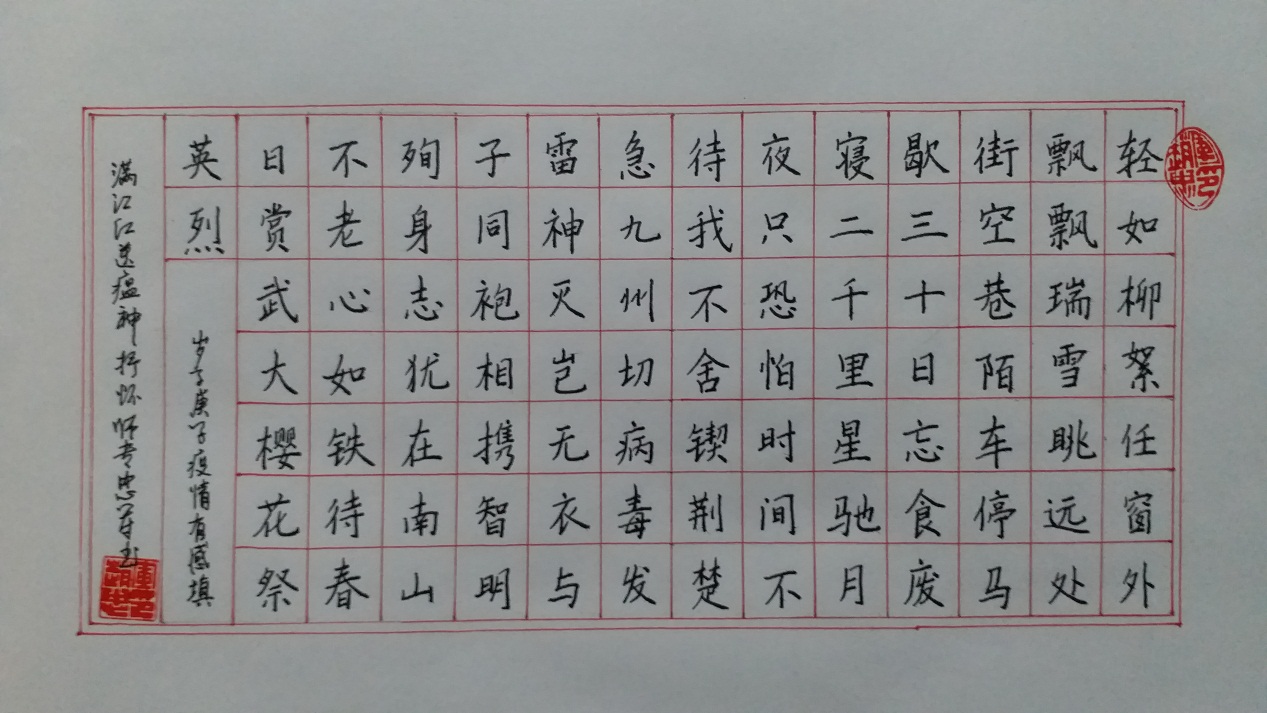 轻如柳絮任窗外
飘飘瑞雪眺远处
街空巷陌车停马
歇三十日忘食废
寝二千里星驰月
夜只恐怕时间不
待我不舍锲荆楚
急九州切病毒发
雷神灭岂无衣与
子同袍相携智明
殉身志犹在南山
不老心如铁待春
日赏武大樱花祭
英烈
岁子庚子疫情有感填
满江江送瘟神抒怀